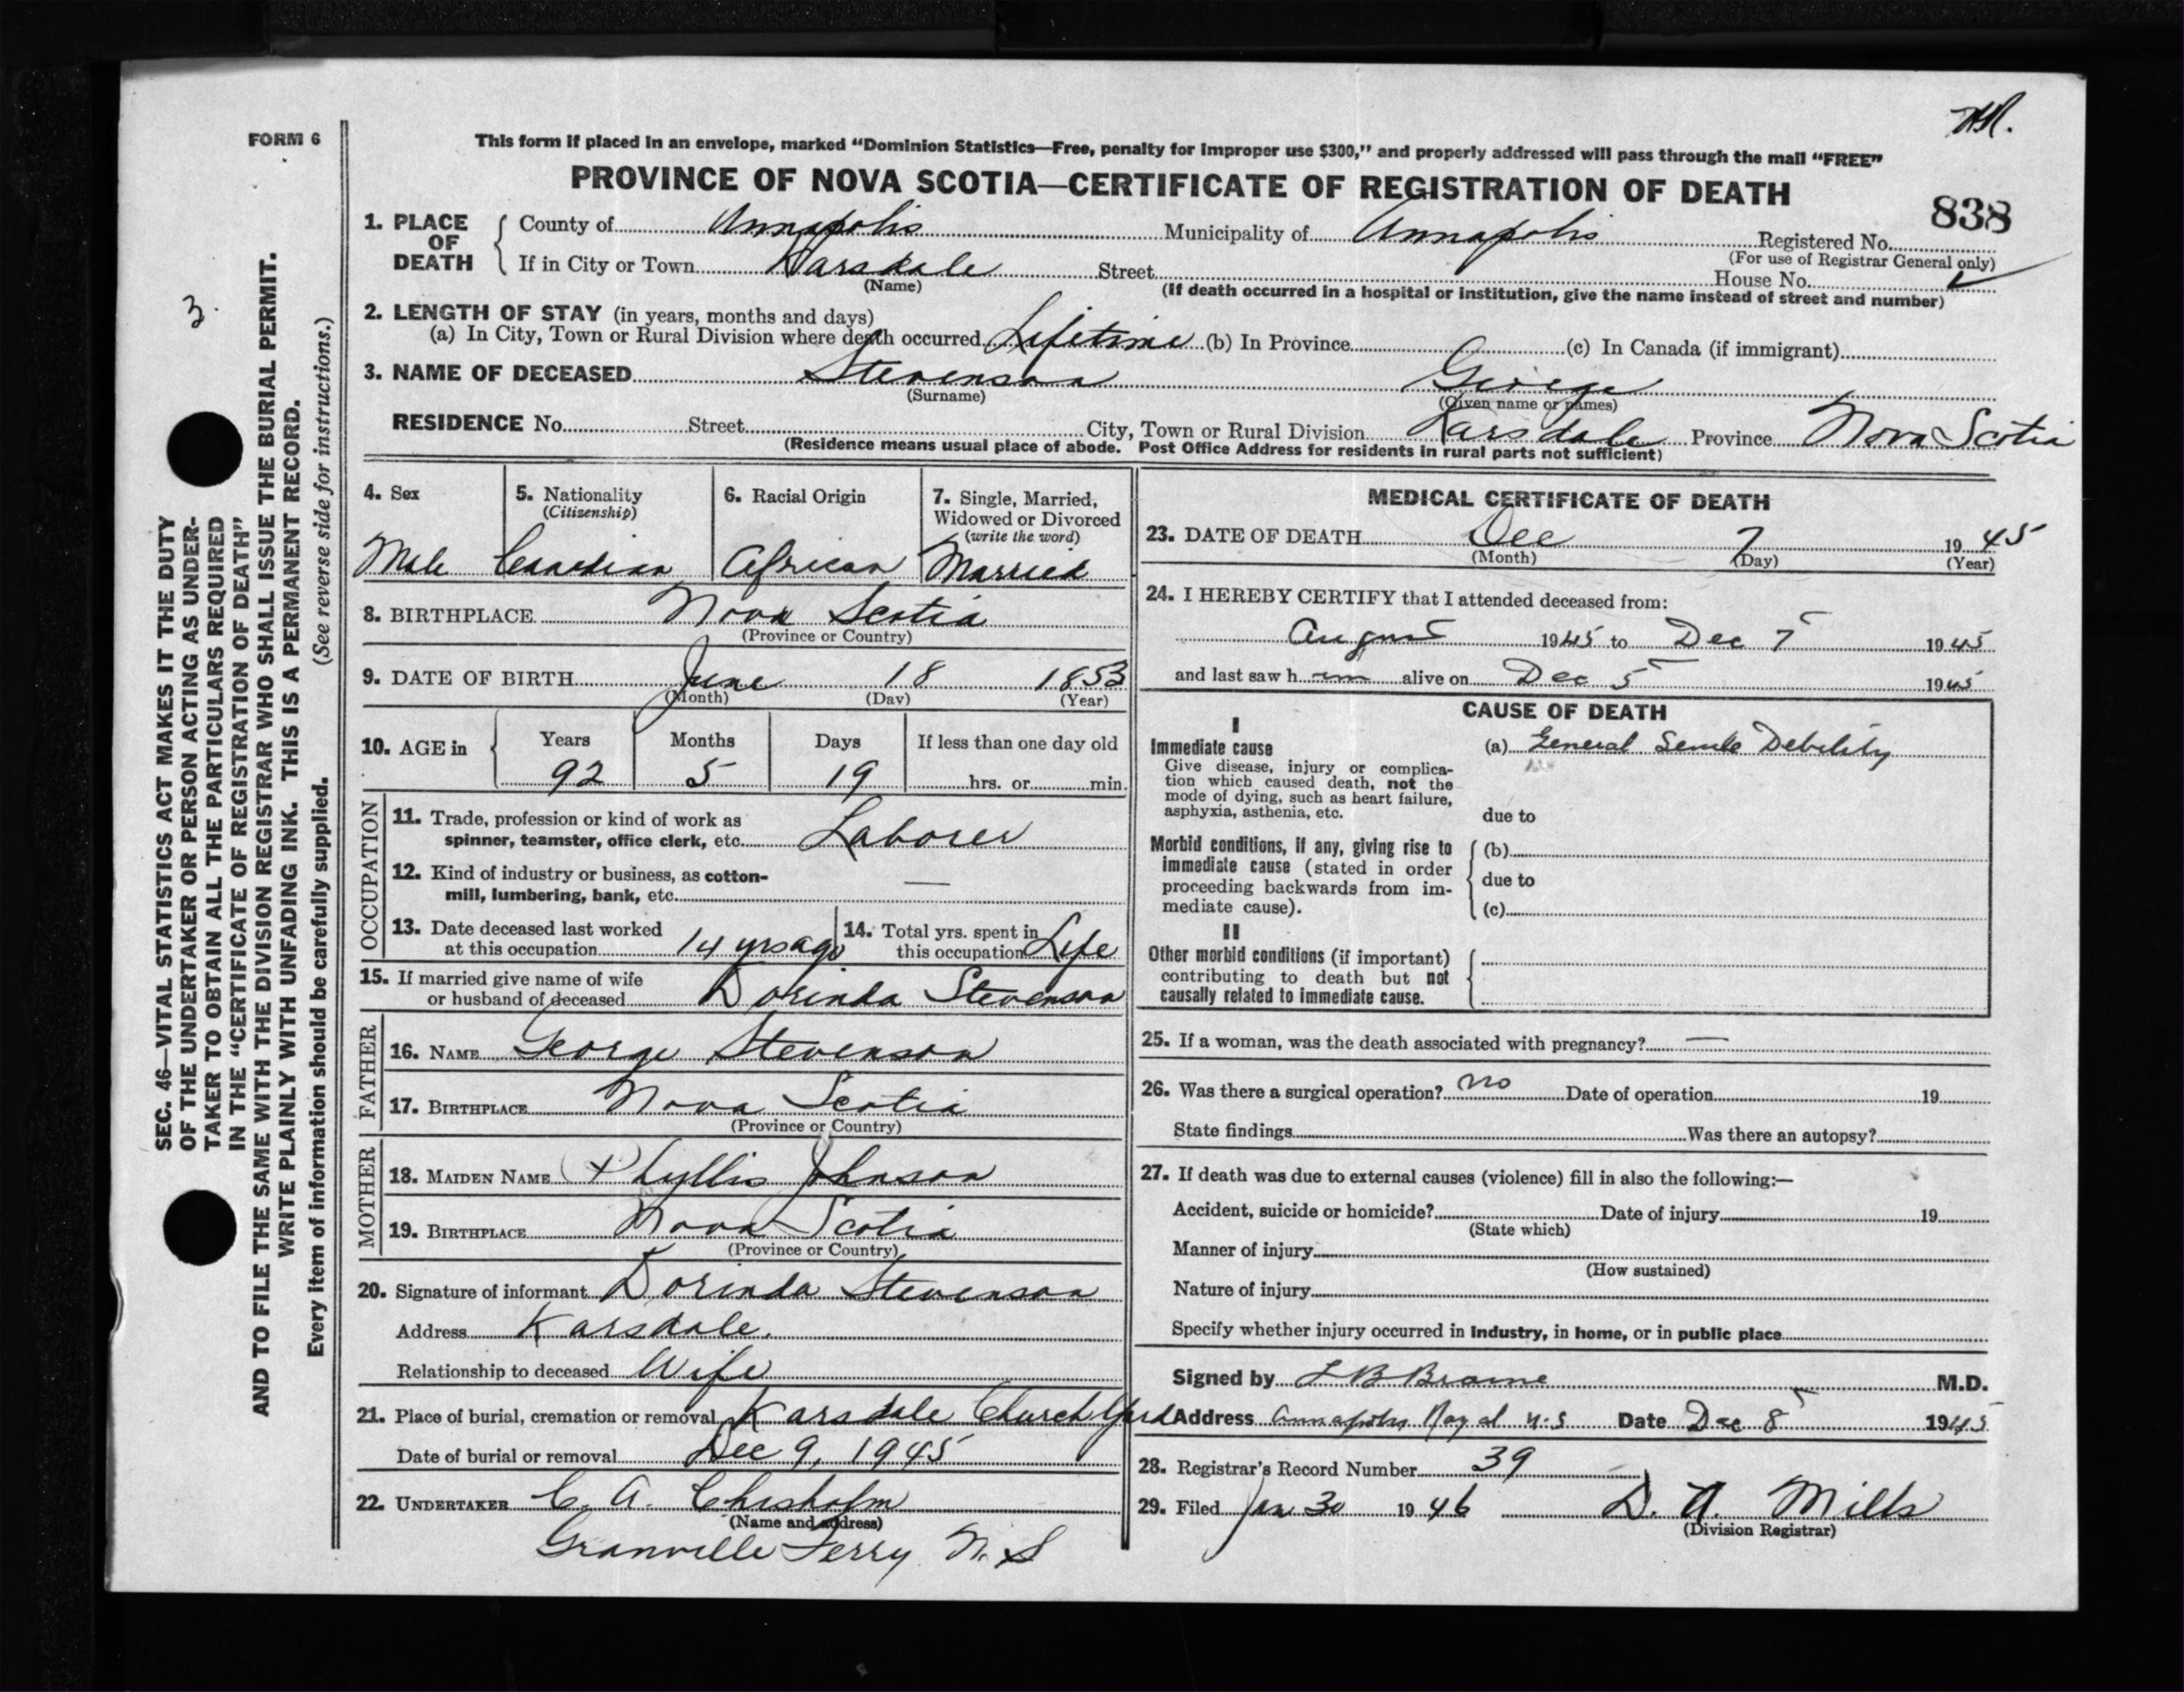 HR.
FORM 6
This form if placed in an envelope, marked "Dominion Statistics—Free, penalty for improper use $300," and properly addressed will pass through the mail "FREE"
PROVINCE OF NOVA SCOTIA—CERTIFICATE OF REGISTRATION OF DEATH
838
1. PLACE OF DEATH { County of Annapolis Municipality of Annapolis Registered No.
(For use of Registrar General only)
If in City or Town Karsdale Street House No.
(Name)
(If death occurred in a hospital or institution, give the name instead of street and number)
2. LENGTH OF STAY (in years, months and days)
(a) In City, Town or Rural Division where death occurred Lifetime (b) In Province (c) In Canada (if immigrant)
3. NAME OF DECEASED Stevenson George
(Surname) (Given name or names)
RESIDENCE No. Street City, Town or Rural Division Karsdale Province Nova Scotia
(Residence means usual place of abode. Post Office Address for residents in rural parts not sufficient)
4. Sex 5. Nationality (Citizenship) 6. Racial Origin 7. Single, Married, Widowed or Divorced (write the word)
Male Canadian African Married
8. BIRTHPLACE Nova Scotia
(Province or Country)
9. DATE OF BIRTH June 18 1853
(Month) (Day) (Year)
10. AGE in { Years Months Days If less than one day old
92 5 19 hrs. or min.
OCCUPATION
11. Trade, profession or kind of work as
spinner, teamster, office clerk, etc. Laborer
12. Kind of industry or business, as cotton-
mill, lumbering, bank, etc. —
13. Date deceased last worked
at this occupation 14 yrs ago
14. Total yrs. spent in
this occupation Life
15. If married give name of wife
or husband of deceased Dorinda Stevenson
FATHER
16. NAME George Stevenson
17. BIRTHPLACE Nova Scotia
(Province or Country)
MOTHER
18. MAIDEN NAME Phyllis Johnson
19. BIRTHPLACE Nova Scotia
(Province or Country)
20. Signature of informant Dorinda Stevenson
Address Karsdale.
Relationship to deceased Wife
21. Place of burial, cremation or removal Karsdale Church Yard
Date of burial or removal Dec 9, 1945
22. UNDERTAKER C. A. Chisholm
(Name and address)
Granville Ferry N. S
MEDICAL CERTIFICATE OF DEATH
23. DATE OF DEATH Dec 7 1945
(Month) (Day) (Year)
24. I HEREBY CERTIFY that I attended deceased from:
August 1945 to Dec 7 1945
and last saw h im alive on Dec 5 1945
CAUSE OF DEATH
I
Immediate cause
Give disease, injury or complica-
tion which caused death, not the
mode of dying, such as heart failure,
asphyxia, asthenia, etc.
(a) General Senile Debility
due to
Morbid conditions, if any, giving rise to
immediate cause (stated in order
proceeding backwards from im-
mediate cause).
(b)
due to
(c)
II
Other morbid conditions (if important)
contributing to death but not
causally related to immediate cause.
25. If a woman, was the death associated with pregnancy? —
26. Was there a surgical operation? no Date of operation 19
State findings Was there an autopsy?
27. If death was due to external causes (violence) fill in also the following:—
Accident, suicide or homicide? Date of injury 19
(State which)
Manner of injury
(How sustained)
Nature of injury
Specify whether injury occurred in industry, in home, or in public place
Signed by L B Braine M.D.
Address Annapolis Royal N.S Date Dec 8 1945
28. Registrar's Record Number 39
29. Filed Jan 30 1946 D. A. Mills
(Division Registrar)
3.
SEC. 46—VITAL STATISTICS ACT MAKES IT THE DUTY
OF THE UNDERTAKER OR PERSON ACTING AS UNDER-
TAKER TO OBTAIN ALL THE PARTICULARS REQUIRED
IN THE "CERTIFICATE OF REGISTRATION OF DEATH"
AND TO FILE THE SAME WITH THE DIVISION REGISTRAR WHO SHALL ISSUE THE BURIAL PERMIT.
WRITE PLAINLY WITH UNFADING INK. THIS IS A PERMANENT RECORD.
Every item of information should be carefully supplied. (See reverse side for instructions.)